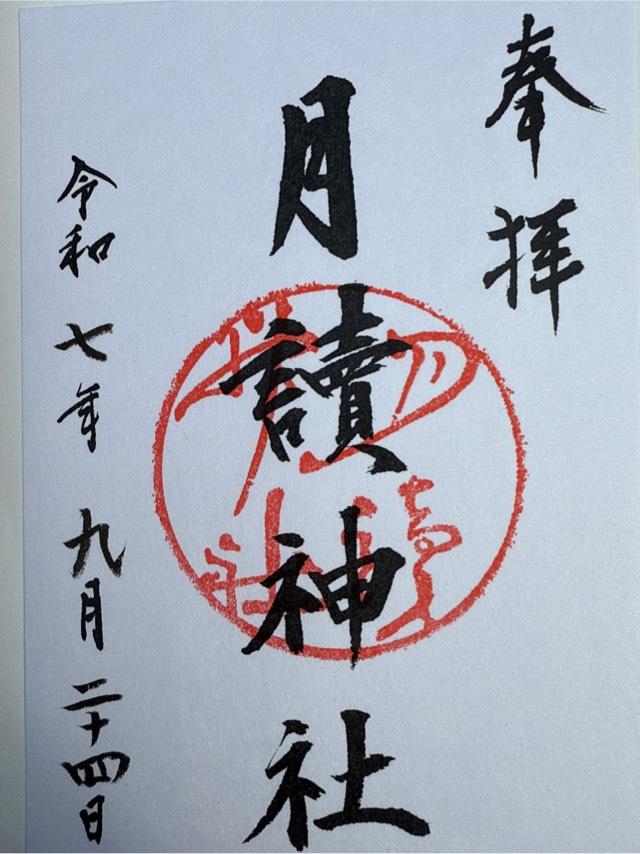 奉拝
月讀神社
令和七年九月二十四日